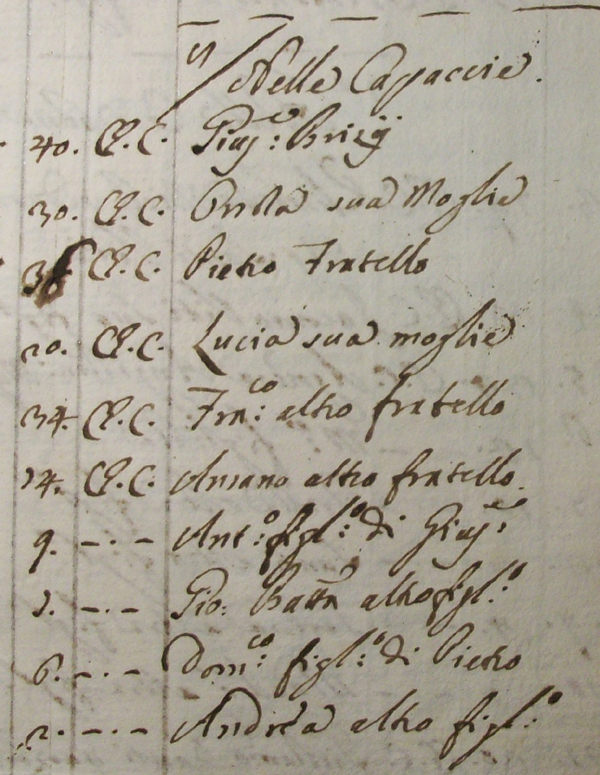 Nelle Capaccie.
40. C. C. Giusᵉ: Brizij
30. C. C. Orsola sua Moglie
C. C. Pietro Fratello
20. C. C. Lucia sua moglie
34. C. C. Franᶜᵒ: altro fratello
14. C. C. Ansano altro fratello.
9. – . – Antᵒ: figlᵒ: di Giusᵉ:
– . – Gio: Batta altro figlᵒ:
6. – . – Domᶜᵒ: figlᵒ: di Pietro
2. – . – Andrea altro figlᵒ: